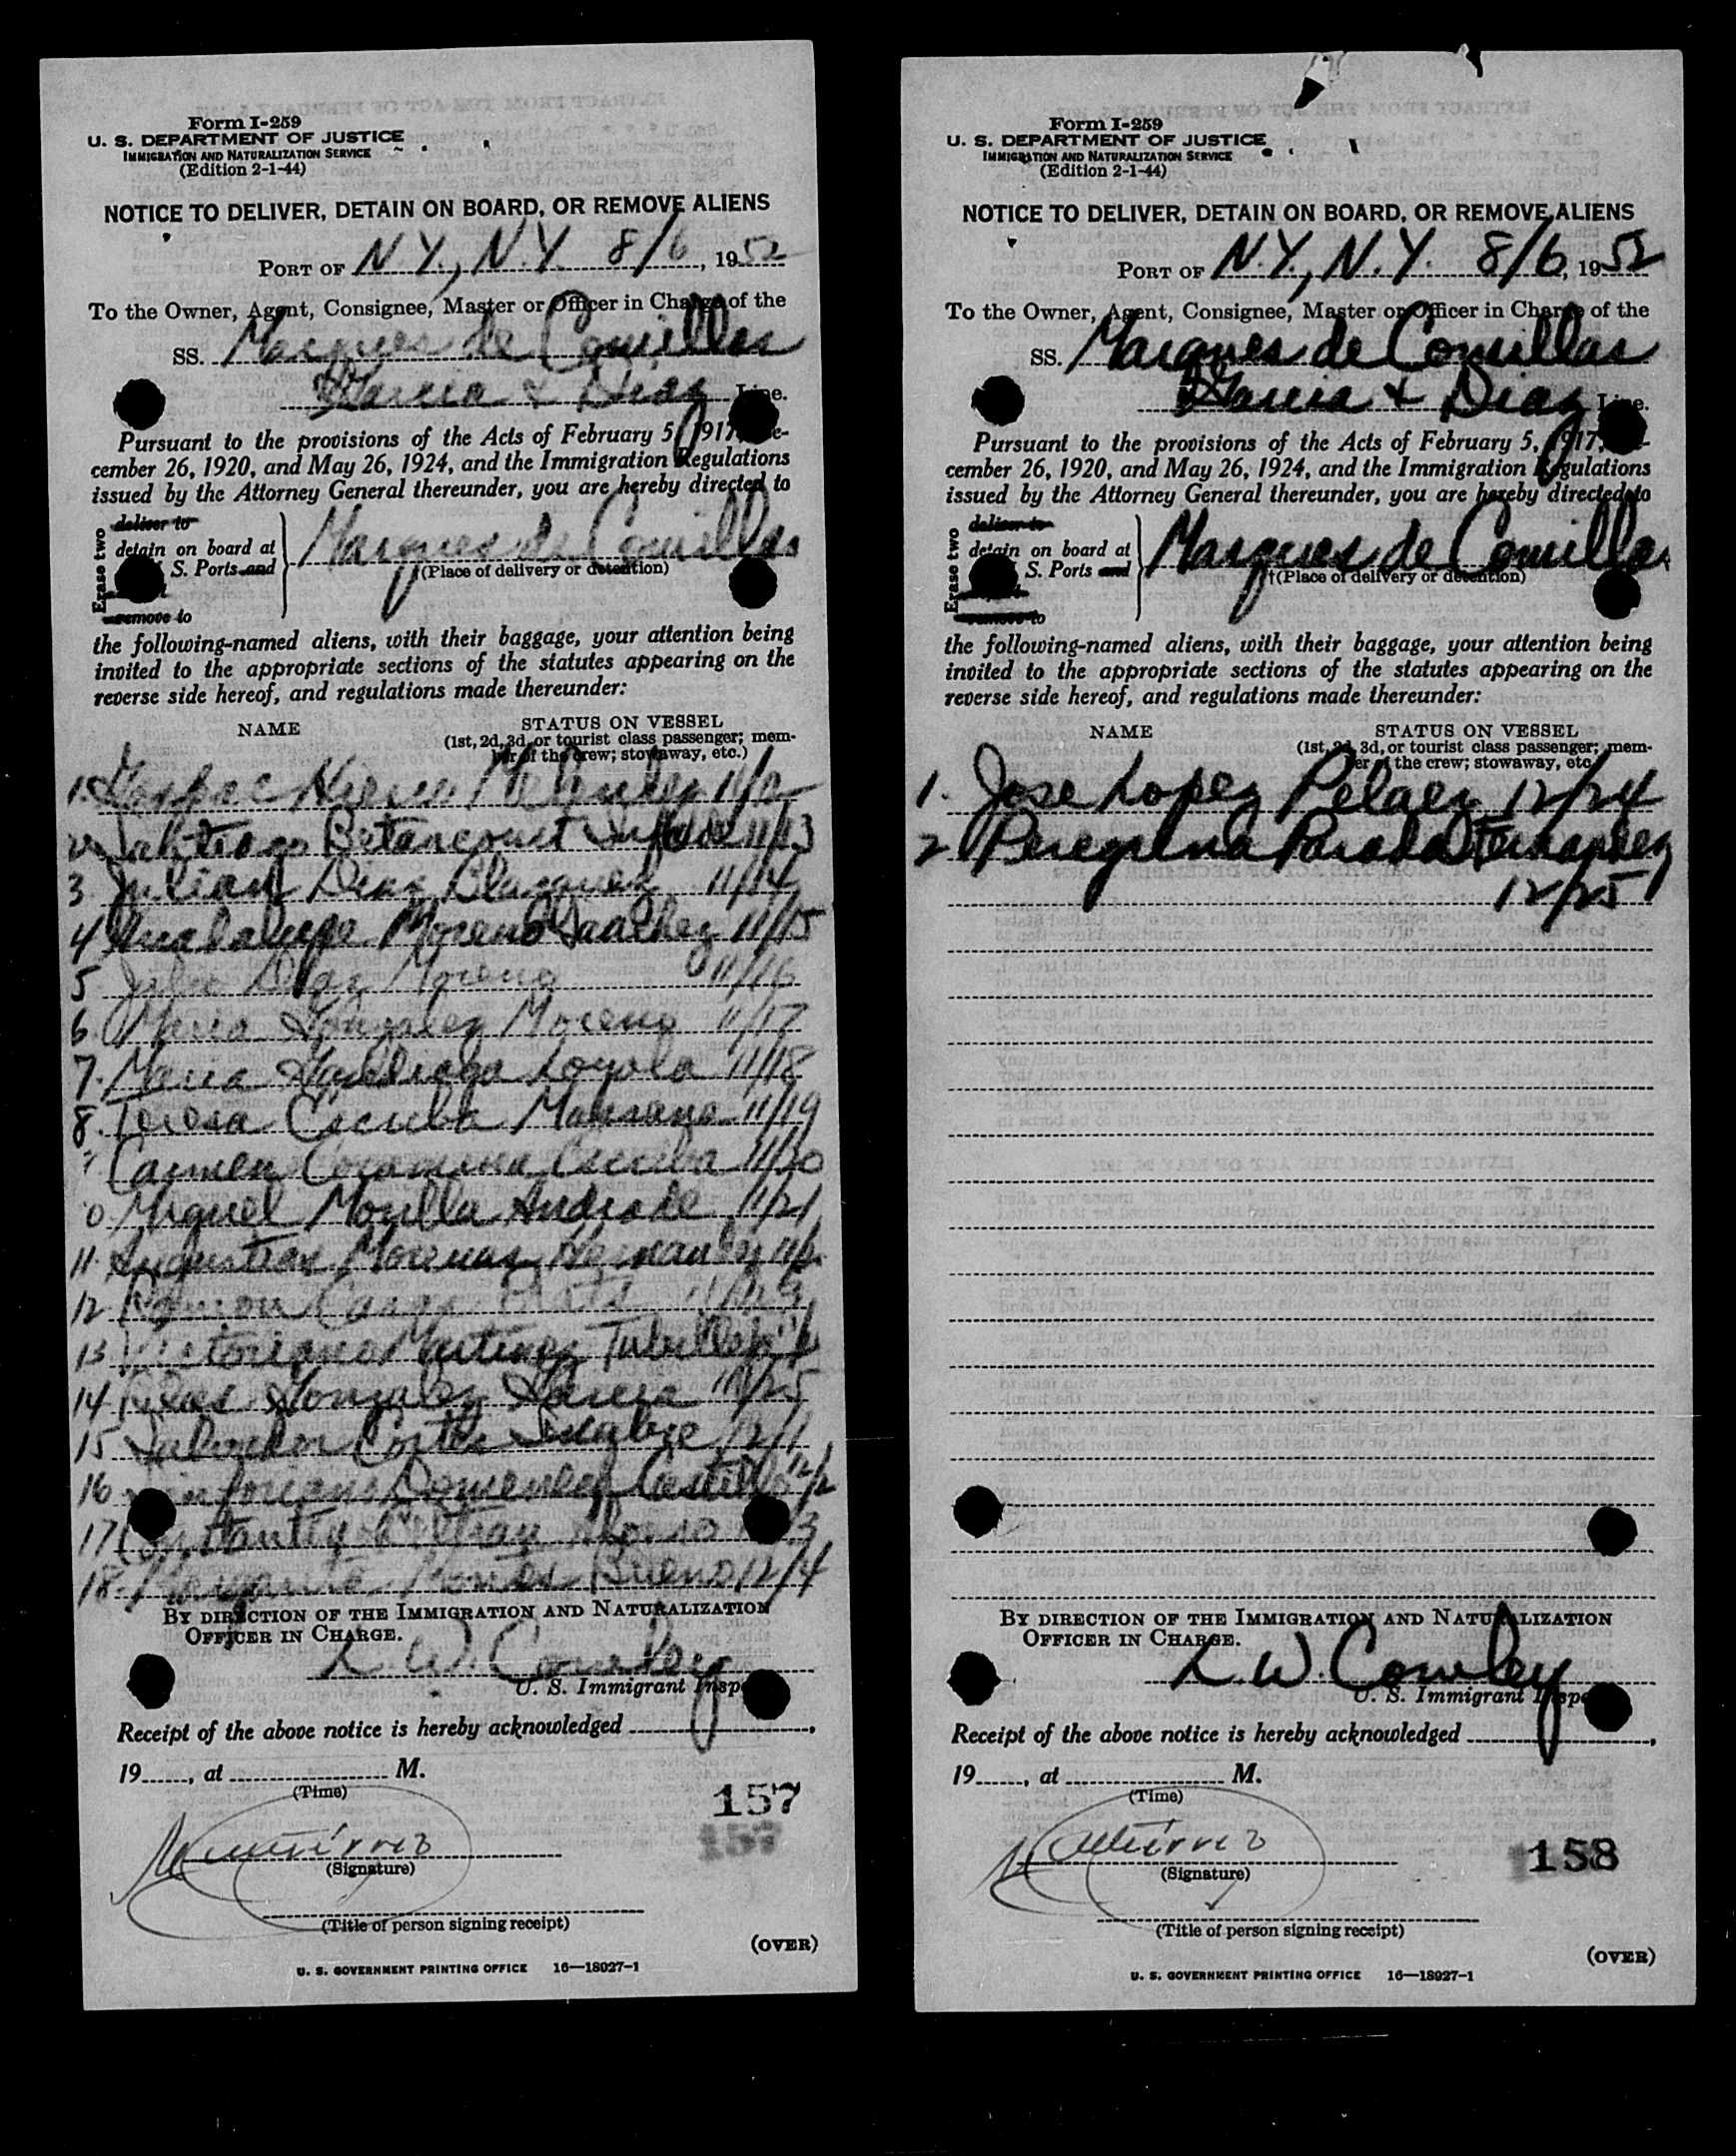 Form I-259
U. S. DEPARTMENT OF JUSTICE
IMMIGRATION AND NATURALIZATION SERVICE
(Edition 2-1-44)
NOTICE TO DELIVER, DETAIN ON BOARD, OR REMOVE ALIENS
PORT OF N.Y., N.Y. 8/6, 1952
To the Owner, Agent, Consignee, Master or Officer in Charge of the
SS. Marques de Comillas
Garcia & Diaz Line.
Pursuant to the provisions of the Acts of February 5, 1917, De-
cember 26, 1920, and May 26, 1924, and the Immigration Regulations
issued by the Attorney General thereunder, you are hereby directed to
Erase two
deliver to
detain on board at
S. Ports and
remove to
Marques de Comillas
(Place of delivery or detention)
the following-named aliens, with their baggage, your attention being
invited to the appropriate sections of the statutes appearing on the
reverse side hereof, and regulations made thereunder:
NAME
STATUS ON VESSEL
(1st, 2d, 3d, or tourist class passenger; mem-
ber of the crew; stowaway, etc.)
1.
Betancourt 11/13
3. Julian Diaz 11/14
4 Moreno Sanchez 11/15
5 Diaz Moreno 11/16
6. Maria Gonzalez Moreno 11/17
7. Maria Loyola 11/18
8. Teresa Escuba 11/19
Carmen Escuba 11/20
0 Miguel Morilla Andrade 11/21
11.
12 Ramon
13 Victoriano Martinez
14 Gonzalez Garcia 11/25
15 Salvador 12/1
16 12/2
17 3
18. Bueno 12/4
BY DIRECTION OF THE IMMIGRATION AND NATURALIZATION
OFFICER IN CHARGE.
L. W. Cowley
U. S. Immigrant Insp
Receipt of the above notice is hereby acknowledged ,
19 , at M.
(Time)
157
157
(Signature)
(Title of person signing receipt)
(OVER)
U. S. GOVERNMENT PRINTING OFFICE 16—18027-1
Form I-259
U. S. DEPARTMENT OF JUSTICE
IMMIGRATION AND NATURALIZATION SERVICE
(Edition 2-1-44)
NOTICE TO DELIVER, DETAIN ON BOARD, OR REMOVE ALIENS
PORT OF N.Y., N.Y. 8/6, 1952
To the Owner, Agent, Consignee, Master or Officer in Charge of the
SS. Marques de Comillas
Garcia & Diaz Line.
Pursuant to the provisions of the Acts of February 5, 1917,
cember 26, 1920, and May 26, 1924, and the Immigration Regulations
issued by the Attorney General thereunder, you are hereby directed to
Erase two
deliver to
detain on board at
S. Ports and
remove to
Marques de Comillas
†(Place of delivery or detention)
the following-named aliens, with their baggage, your attention being
invited to the appropriate sections of the statutes appearing on the
reverse side hereof, and regulations made thereunder:
NAME
STATUS ON VESSEL
(1st, 2d, 3d, or tourist class passenger; mem-
ber of the crew; stowaway, etc.
1. Jose Lopez Pelaez 12/24
2 Peregrina Parada Fernandez
12/25
BY DIRECTION OF THE IMMIGRATION AND NATURALIZATION
OFFICER IN CHARGE.
L. W. Cowley
U. S. Immigrant Insp
Receipt of the above notice is hereby acknowledged ,
19 , at M.
(Time)
158
(Signature)
(Title of person signing receipt)
(OVER)
U. S. GOVERNMENT PRINTING OFFICE 16—18027-1